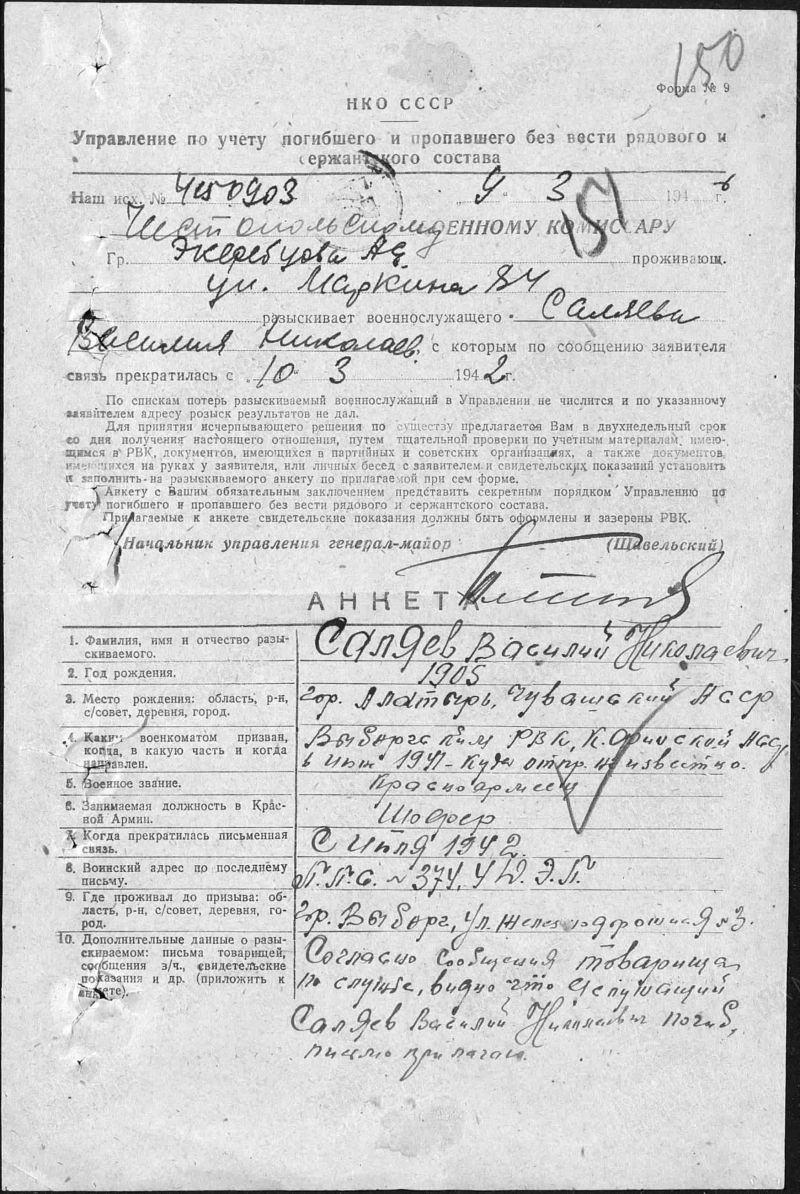 150
Форма № 9
НКО СССР
Управление по учету погибшего и пропавшего без вести рядового и
сержантского состава
Наш исх. № 9 " 3 194 6 г.
Чистопольскому ВОЕННОМУ КОМИССАРУ
151
Гр. проживающ.
ул. Маркина 84
разыскивает военнослужащего Саляева
Василия Николаев. с которым по сообщению заявителя
связь прекратилась с 10 " 3 194 2 г.
По спискам потерь разыскиваемый военнослужащий в Управлении не числится и по указанному
заявителем адресу розыск результатов не дал.
Для принятия исчерпывающего решения по существу предлагается Вам в двухнедельный срок
со дня получения настоящего отношения, путем тщательной проверки по учетным материалам, имею-
щимся в РВК, документов, имеющихся в партийных и советских организациях, а также документов,
имеющихся на руках у заявителя, или личных бесед с заявителем и свидетельских показаний установить
и заполнить на разыскиваемого анкету по прилагаемой при сем форме.
Анкету с Вашим обязательным заключением представить секретным порядком Управлению по
учету погибшего и пропавшего без вести рядового и сержантского состава.
Прилагаемые к анкете свидетельские показания должны быть оформлены и заверены РВК.
Начальник управления генерал-майор (Щавельский)
АНКЕТА
1. Фамилия, имя и отчество разы-
скиваемого.
Саляев Василий Николаевич
2. Год рождения.
1905
3. Место рождения: область, р-н,
с/совет, деревня, город.
гор. Алатырь, Чувашский АССР
4. Каким военкоматом призван,
когда, в какую часть и когда
направлен.
Выборгским РВК, К.Финской
1941 - куда отпр. неизвестно.
5. Военное звание.
Красноармеец
6. Занимаемая должность в Крас-
ной Армии.
Шофер
7. Когда прекратилась письменная
связь.
С 1942
8. Воинский адрес по последнему
письму.
П.П.С. № 374, 4 Д.Э.П.
9. Где проживал до призыва: об-
ласть, р-н, с/совет, деревня, го-
род.
гор. Выборг, ул. Железнодорожная №3.
10. Дополнительные данные о разы-
скиваемом: письма товарищей,
сообщения в/ч., свидетельские
показания и др. (приложить к
анкете).
Согласно сообщения товарища
по службе, видно что
Саляев Василий Николаевич погиб,
письмо прилагаю.